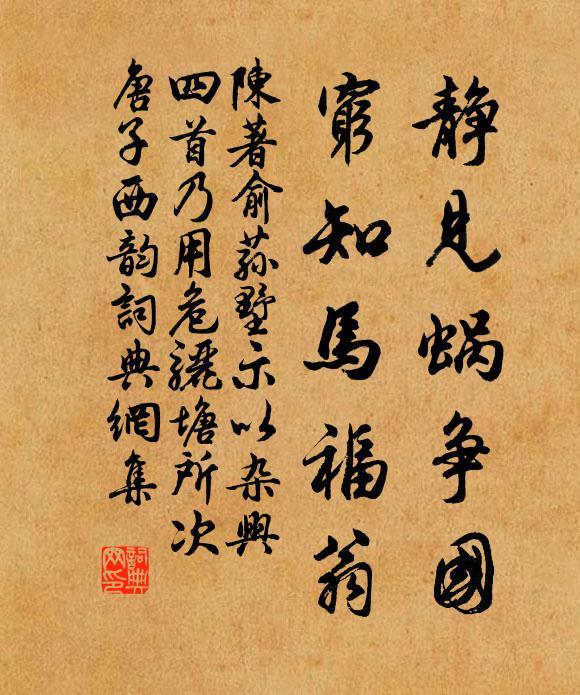 静見蝸争國
窮知馬福翁
陳著俞荪墅示以杂興
四首乃用危驪塘所次
唐子西韵詞典網集
詞典
网印